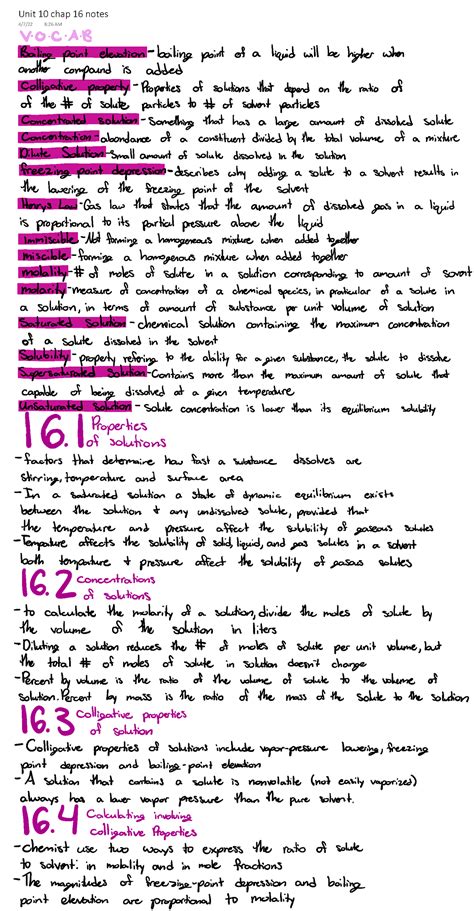 Unit 10 chap 16 notes
4/7/22 8:26 AM
V.O.C.A.B
Boiling point elevation - boiling point of a liquid will be higher when
another compound is added
Colligative property - Properties of solutions that depend on the ratio of
of the # of solute particles to # of solvent particles
Concentrated solution - Something that has a large amount of dissolved solute
Concentration - abondance of a constituent divided by the total volume of a mixture
Dilute Solution - Small amount of solute dissolved in the solution
freezing point depression - describes why adding a solute to a solvent results in
the lowering of the freezing point of the solvent
Henrys Law - Gas law that states that the amount of dissolved gas in a liquid
is proportional to its partial pressure above the liquid
Immiscible - Not forming a homogeneous mixture when added together
miscible - forming a homogenous mixture when added together
molality - # of moles of solute in a solution corresponding to amount of solvent
molarity - measure of concentration of a chemical species, in particular of a solute in
a solution, in terms of amount of substance per unit volume of solution
Saturated Solution - chemical solution containing the maximum concentration
of a solute dissolved in the solvent
Solubility - property refering to the ability for a given substance, the solute to dissolve
Supersaturated Solution - Contains more than the maximum amount of solute that
capable of being dissolved at a given temperature
Unsaturated Solution - Solute concentration is lower than its equilibrium solubility
16.1 Properties
of solutions
- factors that determine how fast a substance dissolves are
stirring, temperature and surface area
- In a saturated solution a state of dynamic equilibrium exists
between the solution + any undissolved solute, provided that
the temperature and pressure affect the solubility of gaseous solutes
- Temperature affects the solubility of solid, liquid, and gas solutes in a solvent
both temperature + pressure affect the solubility of gasous solutes
16.2 Concentrations
of solutions
- to calculate the molarity of a solution, divide the moles of solute by
the volume of the solution in liters
- Diluting a solution reduces the # of moles of solute per unit volume, but
the total # of moles of solute in solution doesn't change
- Percent by volume is the ratio of the volume of solute to the volume of
solution. Percent by mass is the ratio of the mass of the solute to the solution
16.3 Colligative properties
of solution
- Colligative properties of solutions include vapor-pressure lowering, freezing
point depression and boiling-point elevation
- A solution that contains a solute is nonvolatile (not easily vaporized)
always has a lower vapor pressure than the pure solvent.
16.4 Calculating involving
colligative Properties
- chemist use two ways to express the ratio of solute
to solvent: in molality and in mole fractions
- The magnitudes of freezing-point depression and boiling
point elevation are proportional to molality